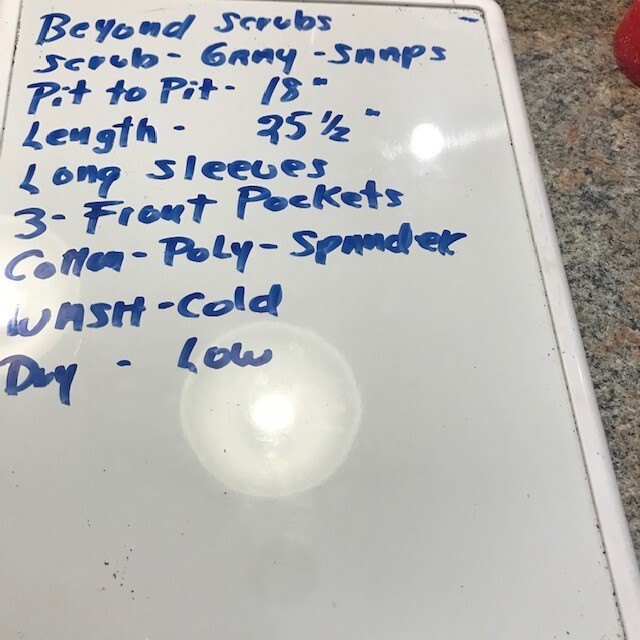 Beyond Scrubs
Scrub - Gray - Snaps
Pit to Pit - 18"
Length - 25 1/2"
Long Sleeves
3 - Front Pockets
Cotton - Poly - Spandex
WASH - Cold
Dry - Low